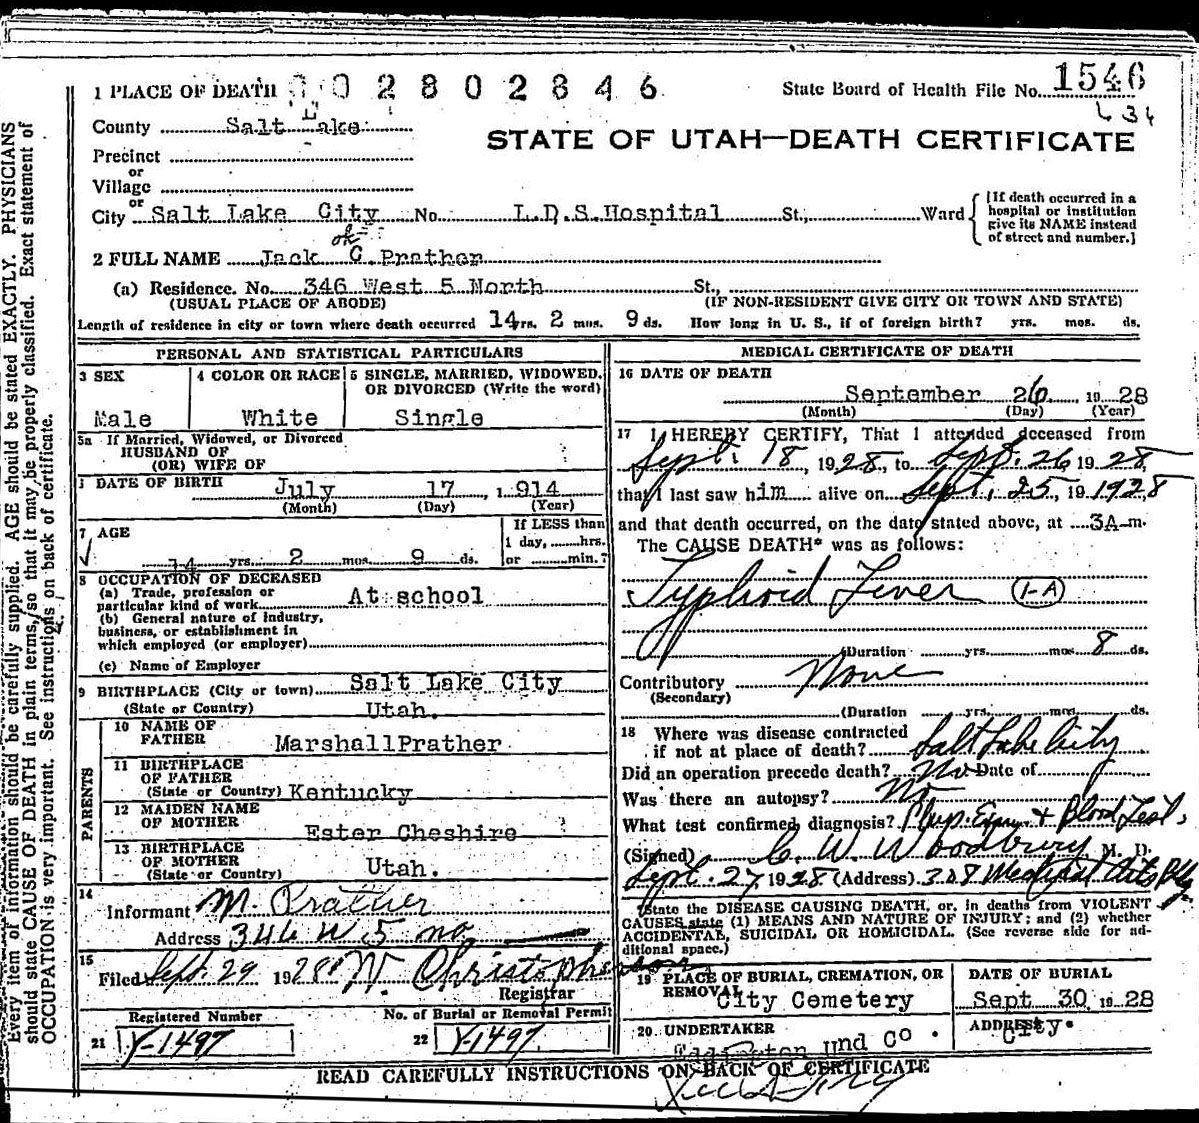 1 PLACE OF DEATH 002802846 State Board of Health File No. 1546
County Salt Lake 634
STATE OF UTAH—DEATH CERTIFICATE
Precinct
or
Village
or
City Salt Lake City No. L.D.S.Hospital St., Ward
[If death occurred in a hospital or institution give its NAME instead of street and number.]
ok
2 FULL NAME Jack C. Prather
(a) Residence. No. 346 West 5 North St.,
(USUAL PLACE OF ABODE) (IF NON-RESIDENT GIVE CITY OR TOWN AND STATE)
Length of residence in city or town where death occurred 14 yrs. 2 mos. 9 ds. How long in U. S., if of foreign birth? yrs. mos. ds.
PERSONAL AND STATISTICAL PARTICULARS
3 SEX
Male
4 COLOR OR RACE
White
5 SINGLE, MARRIED, WIDOWED,
OR DIVORCED (Write the word)
Single
5a If Married, Widowed, or Divorced
HUSBAND OF
(OR) WIFE OF
DATE OF BIRTH July 17, 1914
(Month) (Day) (Year)
7 AGE
14 yrs. 2 mos. 9 ds.
If LESS than
1 day, hrs.
or min.?
8 OCCUPATION OF DECEASED
(a) Trade, profession or
particular kind of work At school
(b) General nature of industry,
business, or establishment in
which employed (or employer)
(c) Name of Employer
9 BIRTHPLACE (City or town) Salt Lake City
(State or Country) Utah.
PARENTS
10 NAME OF
FATHER Marshall Prather
11 BIRTHPLACE
OF FATHER
(State or Country) Kentucky
12 MAIDEN NAME
OF MOTHER
Ester Cheshire
13 BIRTHPLACE
OF MOTHER
(State or Country) Utah.
14
Informant M. Prather
Address 346 W. 5 no.
15
Filed Sept. 29 1928 W. Christopherson
Registrar
Registered Number No. of Burial or Removal Permit
21 Y-1497 22 Y-1497.
MEDICAL CERTIFICATE OF DEATH
16 DATE OF DEATH
September 26, 1928
(Month) (Day) (Year)
17 I HEREBY CERTIFY, That I attended deceased from
Sept. 18, 1928, to Sept. 26 1928,
that I last saw him alive on Sept. 25, 19 1928
and that death occurred, on the date stated above, at 3A m.
The CAUSE DEATH* was as follows:
Typhoid Fever (1-A)
(Duration yrs. mos. 8 ds.
Contributory None
(Secondary)
(Duration yrs. mos. ds.
18 Where was disease contracted
if not at place of death? Salt Lake City
Did an operation precede death? No Date of
Was there an autopsy? No
What test confirmed diagnosis? & Blood Test.
(Signed) C. W. Woodbury M. D.
Sept. 27, 1928 (Address) 308 Medical Arts Bldg
*State the DISEASE CAUSING DEATH, or, in deaths from VIOLENT
CAUSES state (1) MEANS AND NATURE OF INJURY; and (2) whether
ACCIDENTAL, SUICIDAL OR HOMICIDAL. (See reverse side for ad-
ditional space.)
19 PLACE OF BURIAL, CREMATION, OR
REMOVAL
City Cemetery
DATE OF BURIAL
Sept 30 1928
20 UNDERTAKER
Eddington Und Co.
ADDRESS
City.
READ CAREFULLY INSTRUCTIONS ON BACK OF CERTIFICATE
Every item of information should be carefully supplied. AGE should be stated EXACTLY. PHYSICIANS
should state CAUSE OF DEATH in plain terms, so that it may be properly classified. Exact statement of
OCCUPATION is very important. See instructions on back of certificate.